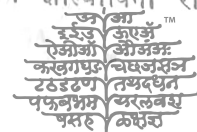 अ आ ™
इईउ ऊएॲ
ऐओऑ औअंअः
कखगघङ चछजझञ
टठडढण तथदधन
पफबभम यरलवश
षसह ळक्षज्ञ